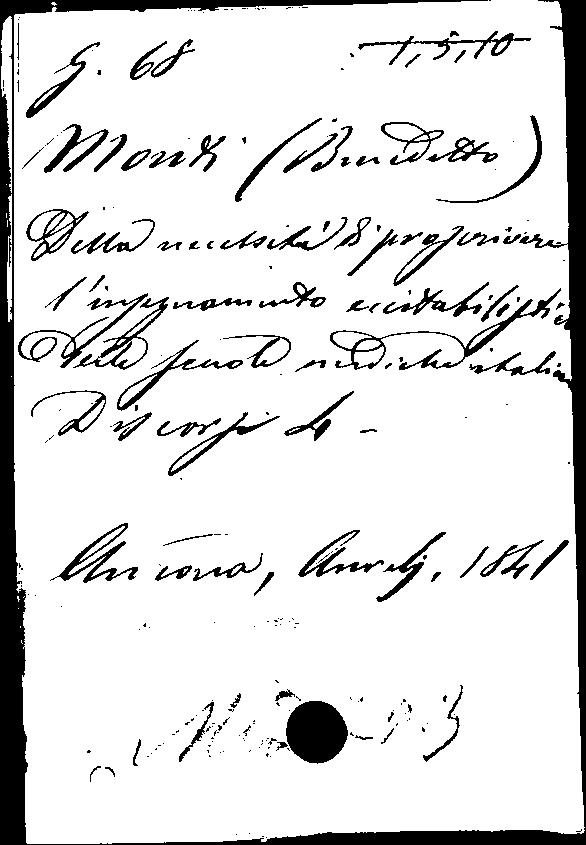 G. 68
1, 5, 10
Monti (Benedetto)
Della necessità di proscrivere
l'insegnamento eccitabilistico
dalle scuole mediche italia
Discorsi 4 -
Ancona, Aurelj, 1841